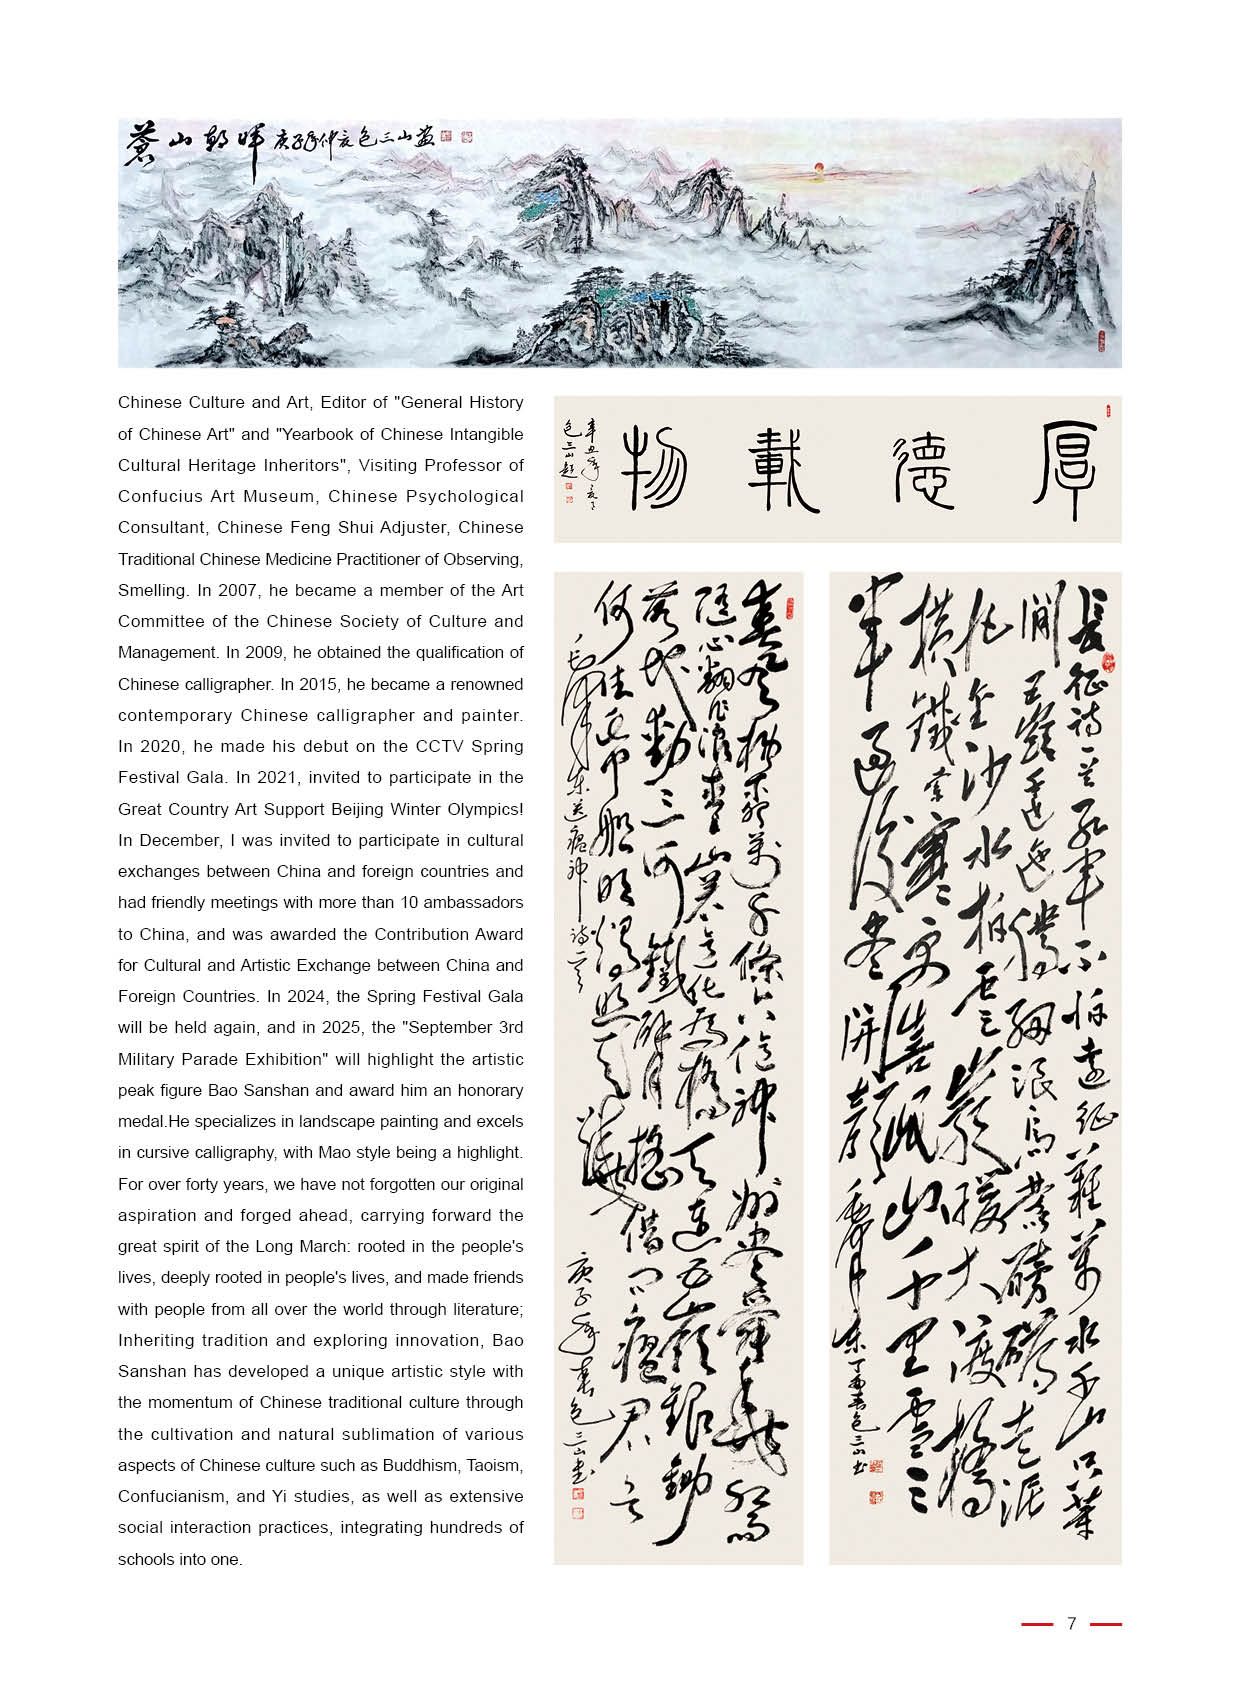 蒼山朝暉 庚子年仲亥包三山畫
Chinese Culture and Art, Editor of "General History
of Chinese Art" and "Yearbook of Chinese Intangible
Cultural Heritage Inheritors", Visiting Professor of
Confucius Art Museum, Chinese Psychological
Consultant, Chinese Feng Shui Adjuster, Chinese
Traditional Chinese Medicine Practitioner of Observing,
Smelling. In 2007, he became a member of the Art
Committee of the Chinese Society of Culture and
Management. In 2009, he obtained the qualification of
Chinese calligrapher. In 2015, he became a renowned
contemporary Chinese calligrapher and painter.
In 2020, he made his debut on the CCTV Spring
Festival Gala. In 2021, invited to participate in the
Great Country Art Support Beijing Winter Olympics!
In December, I was invited to participate in cultural
exchanges between China and foreign countries and
had friendly meetings with more than 10 ambassadors
to China, and was awarded the Contribution Award
for Cultural and Artistic Exchange between China and
Foreign Countries. In 2024, the Spring Festival Gala
will be held again, and in 2025, the "September 3rd
Military Parade Exhibition" will highlight the artistic
peak figure Bao Sanshan and award him an honorary
medal.He specializes in landscape painting and excels
in cursive calligraphy, with Mao style being a highlight.
For over forty years, we have not forgotten our original
aspiration and forged ahead, carrying forward the
great spirit of the Long March: rooted in the people's
lives, deeply rooted in people's lives, and made friends
with people from all over the world through literature;
Inheriting tradition and exploring innovation, Bao
Sanshan has developed a unique artistic style with
the momentum of Chinese traditional culture through
the cultivation and natural sublimation of various
aspects of Chinese culture such as Buddhism, Taoism,
Confucianism, and Yi studies, as well as extensive
social interaction practices, integrating hundreds of
schools into one.
厚德載物
辛丑年
包三山題
長征詩一首紅軍不怕遠征難萬水千山只等
閒五嶺逶迤騰細浪烏蒙磅礴走泥
丸金沙水拍雲巖暖大渡橋
橫鐵索寒更喜岷山千里雪三
軍過後盡開顏
毛澤東丁酉春包三山書
春風楊柳萬千條六億神州盡舜堯紅雨
隨心翻作浪青山著意化為橋天連五嶺銀鋤
落地動三河鐵臂搖借問瘟君欲
何往紙船明燭照天燒
毛澤東送瘟神詩一首
庚子年春包三山書
7